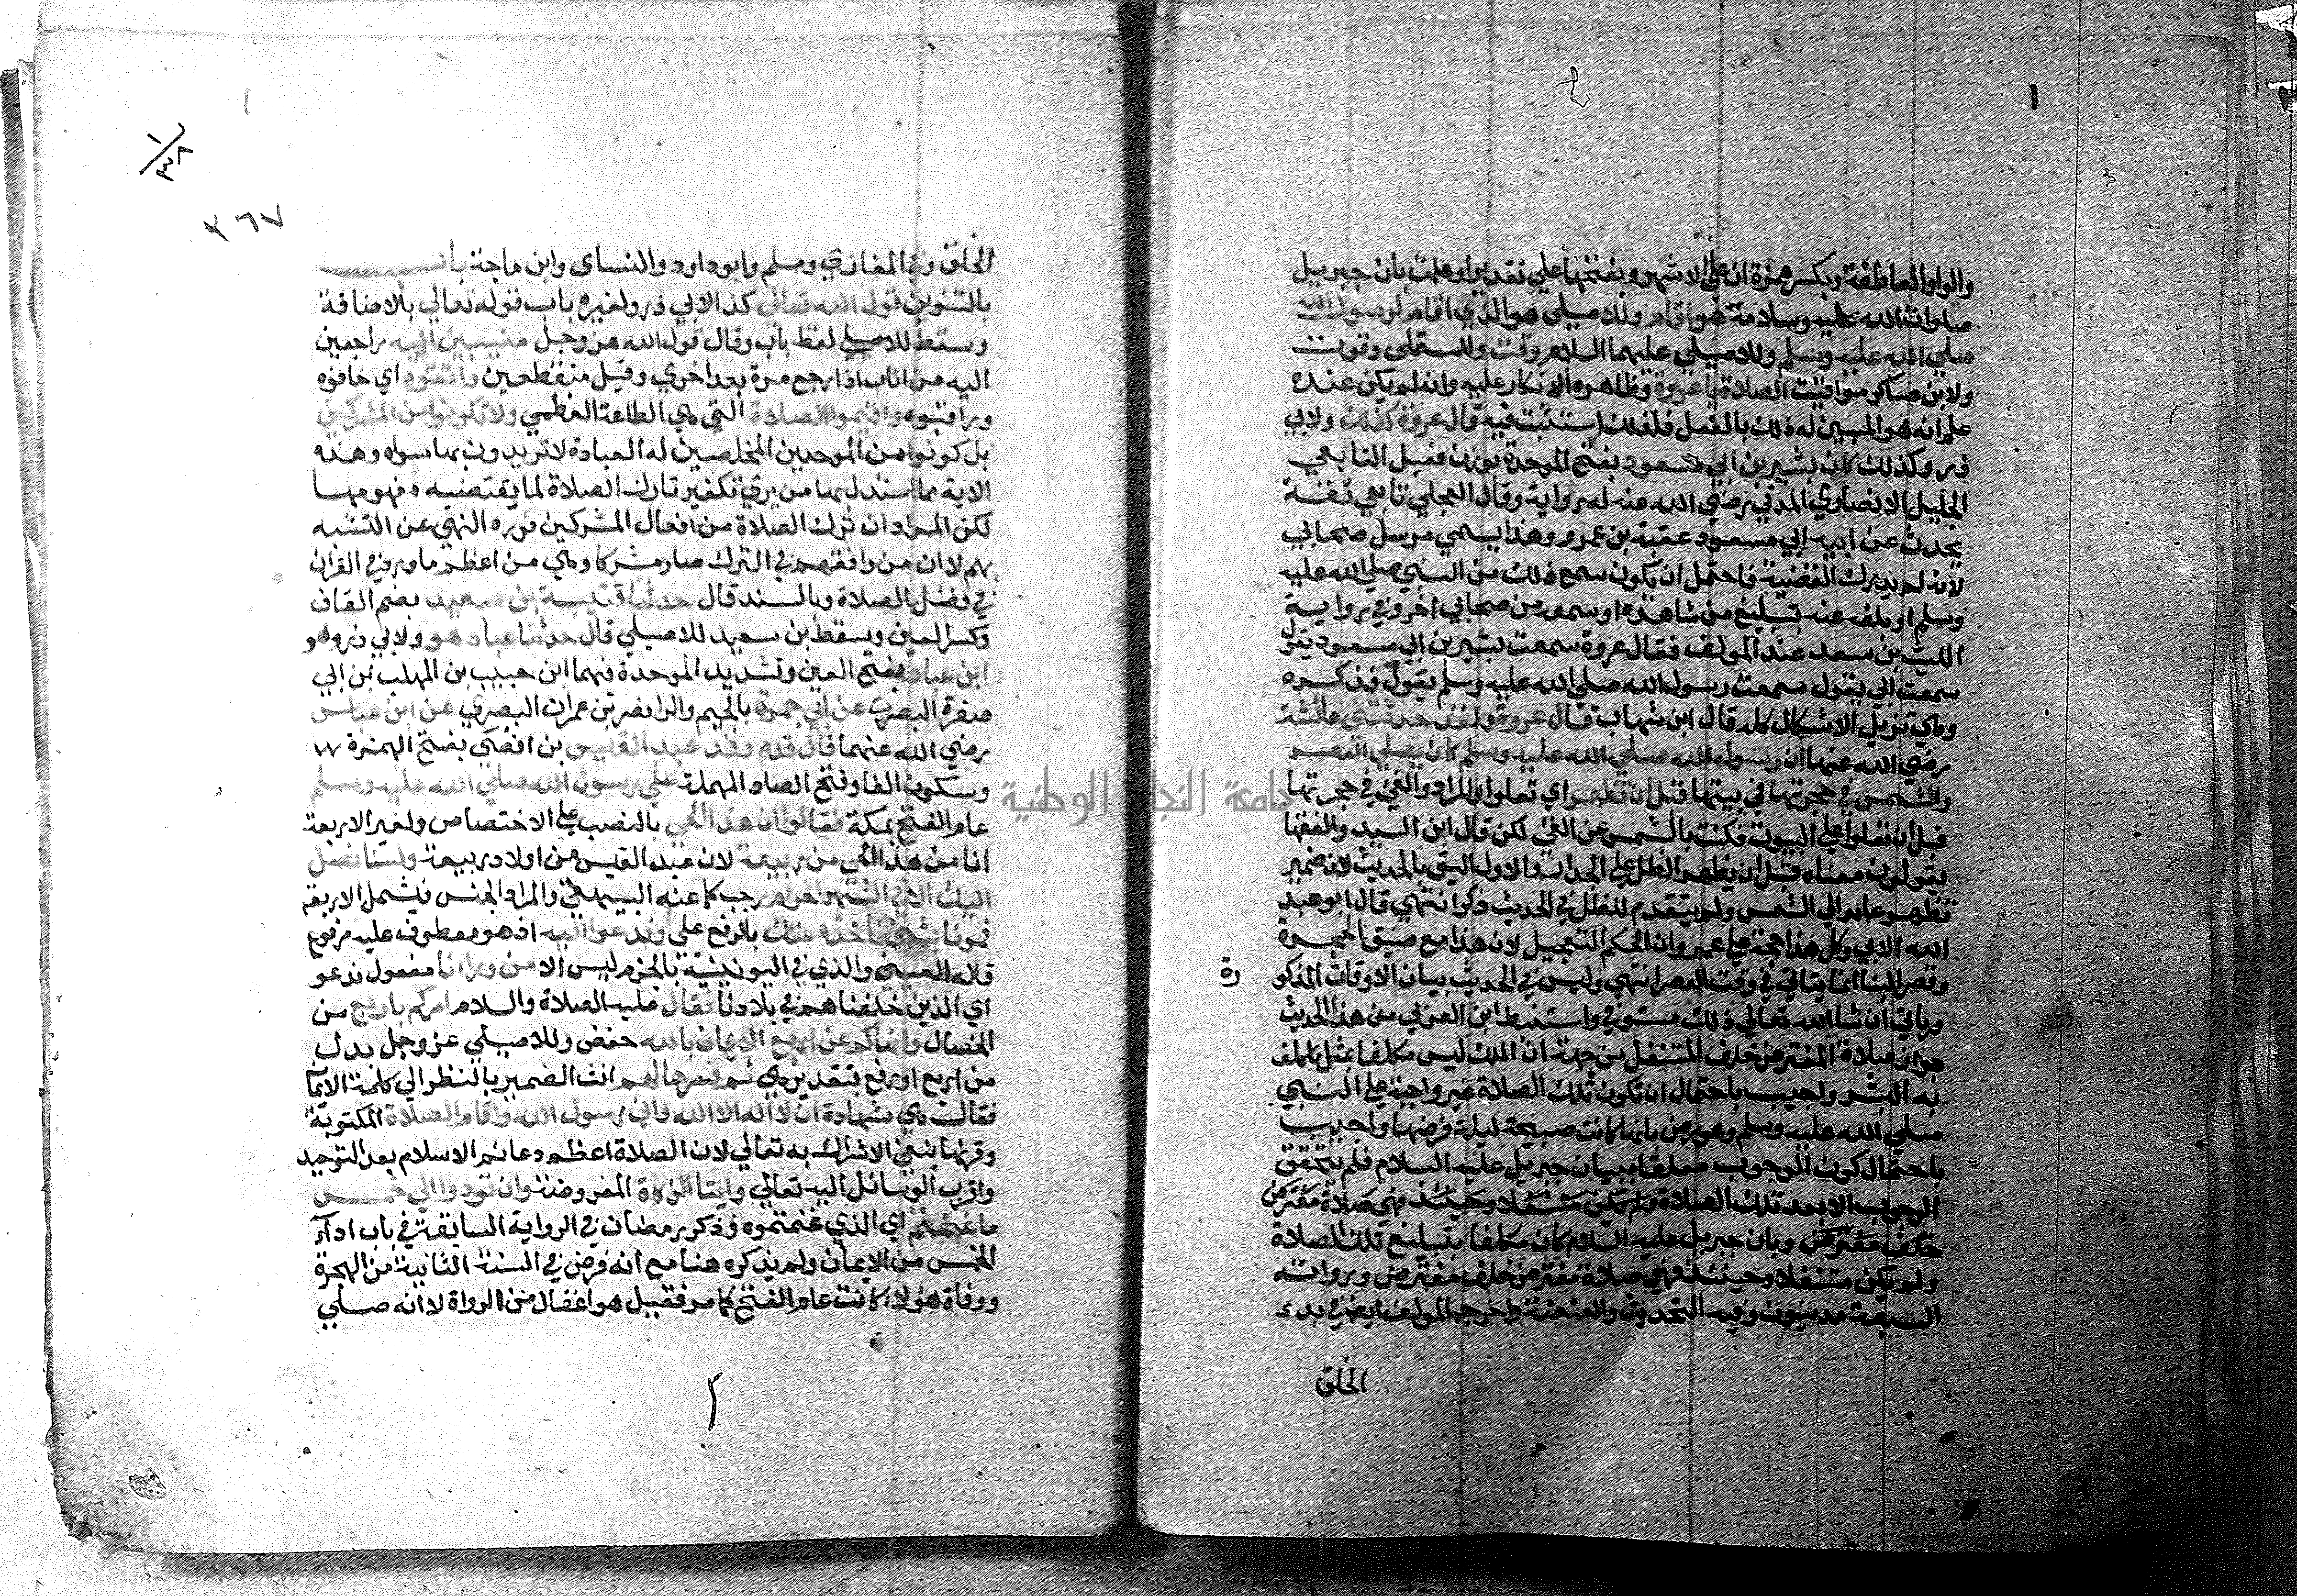 والواو العاطفة وبكسر همزة ان على الاشهر وبفتحها على تقدير او علمت بان جبريل
صلوات الله عليه وسلامه هو اقام وللاصيلي هو الذي اقام لرسول الله
صلى الله عليه وسلم وللاصيلي عليهما السلام وقت وللمستملي وقوت
ولابن عساكر مواقيت الصلاة يا عروة وظاهره الانكار عليه وانه لم يكن عنده
علم انه هو المبين له ذلك بالفعل فلذلك استثبت فيه قال عروة كذلك ولابي
ذر وكذلك كان بشير بن ابي مسعود بفتح الموحدة بوزن فعيل التابعي
الجليل الانصاري المدني رضي الله عنه له رواية وقال العجلي تابعي ثقة
يحدث عن ابيه ابي مسعود عقبة بن عمرو وهذا يسمي مرسل صحابي
لانه لم يدرك القضية فاحتمل ان يكون سمع ذلك من النبي صلي الله عليه
وسلم او بلغه عنه بتبليغ من شاهده او سمعه من صحابي اخر وفي رواية
الليث بن سعد عند المولف فقال عروة سمعت بشير بن ابي مسعود يقول
سمعت ابي يقول سمعت رسول الله صلي الله عليه وسلم يقول فذكره
وهي تزيل الاشكال كله قال ابن شهاب قال عروة ولقد حدثتني عائشة
رضي الله عنها ان رسول الله صلي الله عليه وسلم كان يصلي العصر
والشمس في حجرتها في بيتها قبل ان تظهر اي تعلوا والمراد والفي في حجرتها
قبل ان تعلوا على البيوت فكنت بالشمس عن الفي لكن قال ابن السيد والفقها
يقولون معناه قبل ان يظهر الظل على الجدار والاول اليق بالحديث لان ضمير
تظهر عايد الي الشمس ولم يتقدم للظل في الحديث ذكر انتهي قال ابو عبد
الله الابي وكل هذا حجة على عمر وان الحكم التعجيل لان هذا مع ضيق الحجرة
وقصر البنا انما يتاتي في وقت العصر انتهي وليس في الحديث بيان الاوقات المذكو رة
وياتي ان شا الله تعالي ذلك مستوفي واستنبط ابن العربي من هذا الحديث
جواز صلاة المفترض خلف المتنفل من جهة ان الملك ليس مكلفا بمثل ما كلف
به البشر واجيب باحتمال ان تكون تلك الصلاة غير واجبة على النبي
صلي الله عليه وسلم وعورض بانها كانت صبيحة ليلة فرضها واجيب
باحتمال كون الوجوب معلقا ببيان جبريل عليه السلام فلم يتحقق
الوجوب الا بعد تلك الصلاة ولم يكن متنفلا وحينئذ فهي صلاة مفترض
خلف مفترض وبان جبريل عليه السلام كان مكلفا بتبليغ تلك الصلاة
ولم يكن متنفلا وحينئذ فهي صلاة مفترض خلف مفترض ورواته
السبعة مدنيون وفيه التحديث والعنعنة واخرجه المولف ايضا في بدء
الخلق
٣٦٧
الخلق وفي المغازي ومسلم وابو داود والنساي وابن ماجة باب
بالتنوين قول الله تعالي كذا لابي ذر ولغيره باب قوله تعالي بالاضافة
وسقط للاصيلي لفظ باب وقال قول الله عز وجل منيبين اليه راجعين
اليه من اناب اذا رجع مرة بعد اخري وقيل منقطعين واتقوه اي خافوه
وراقبوه واقيموا الصلاة التي هي الطاعة العظمي ولا تكونوا من المشركين
بل كونوا من الموحدين المخلصين له العبادة لا تريدون بها سواه وهذه
الاية مما استدل بها من يري تكفير تارك الصلاة لما يقتضيه مفهومها
لكن المراد ان ترك الصلاة من افعال المشركين فورد النهي عن التشبه
بهم لا ان من وافقهم في الترك صار مشركا وهي من اعظم ما ورد في القران
في فضل الصلاة وبالسند قال حدثنا قتيبة بن سعيد بضم القاف
وكسر العين وسقط بن سعيد للاصيلي قال حدثنا عباد هو ولابي ذر وهو
ابن عباد بفتح العين وتشديد الموحدة فيهما ابن حبيب بن المهلب بن ابي
صفرة البصري عن ابي جمرة بالجيم والرا نصر بن عمران البصري عن ابن عباس
رضي الله عنهما قال قدم وفد عبد القيس بن افصي بفتح الهمزة
وسكون الفا وفتح الصاد المهملة علي رسول الله صلي الله عليه وسلم
عام الفتح بمكة فقالوا ان هذا الحي بالنصب على الاختصاص ولغير الاربعة
انا من هذا الحي من ربيعة لان عبد القيس من اولاد ربيعة ولسنا نصل
اليك الا في الشهر الحرام رجب كما عند البيهقي والمراد الجنس فيشمل الاربعة
فمرنا بشيء ناخذه عنك بالرفع علي وندعوا اليه اذ هو معطوف عليه مرفوع
قاله العيني والذي في اليونينية بالجزم ليس الا من وراءنا مفعول ندعو
اي الذين خلفناهم في بلادنا فقال عليه الصلاة والسلام امركم باربع من
الخصال وانهاكم عن اربع الايمان بالله خفض وللاصيلي عز وجل بدل
من اربع او رفع بتقدير هي ثم فسرها لهم انث الضمير بالنظر الي كلمة الايما
فقال هي شهادة ان لا اله الا الله واني رسول الله واقام الصلاة المكتوبة
وقرنها بنفي الاشراك به تعالي لان الصلاة اعظم دعائم الاسلام بعد التوحيد
واقرب الوسائل اليه تعالي وايتا الزكاة المفروضة وان تودوا الي خمس
ما غنمتم اي الذي غنمتموه وذكر رمضان في الرواية السابقة في باب اداء
الخمس من الايمان ولم يذكره هنا مع انه فرض في السنة الثانية من الهجرة
ووفادة هولاء كانت عام الفتح كما مر فقيل هو اغفال من الرواة لا انه صلي
جامعة النجاح الوطنية